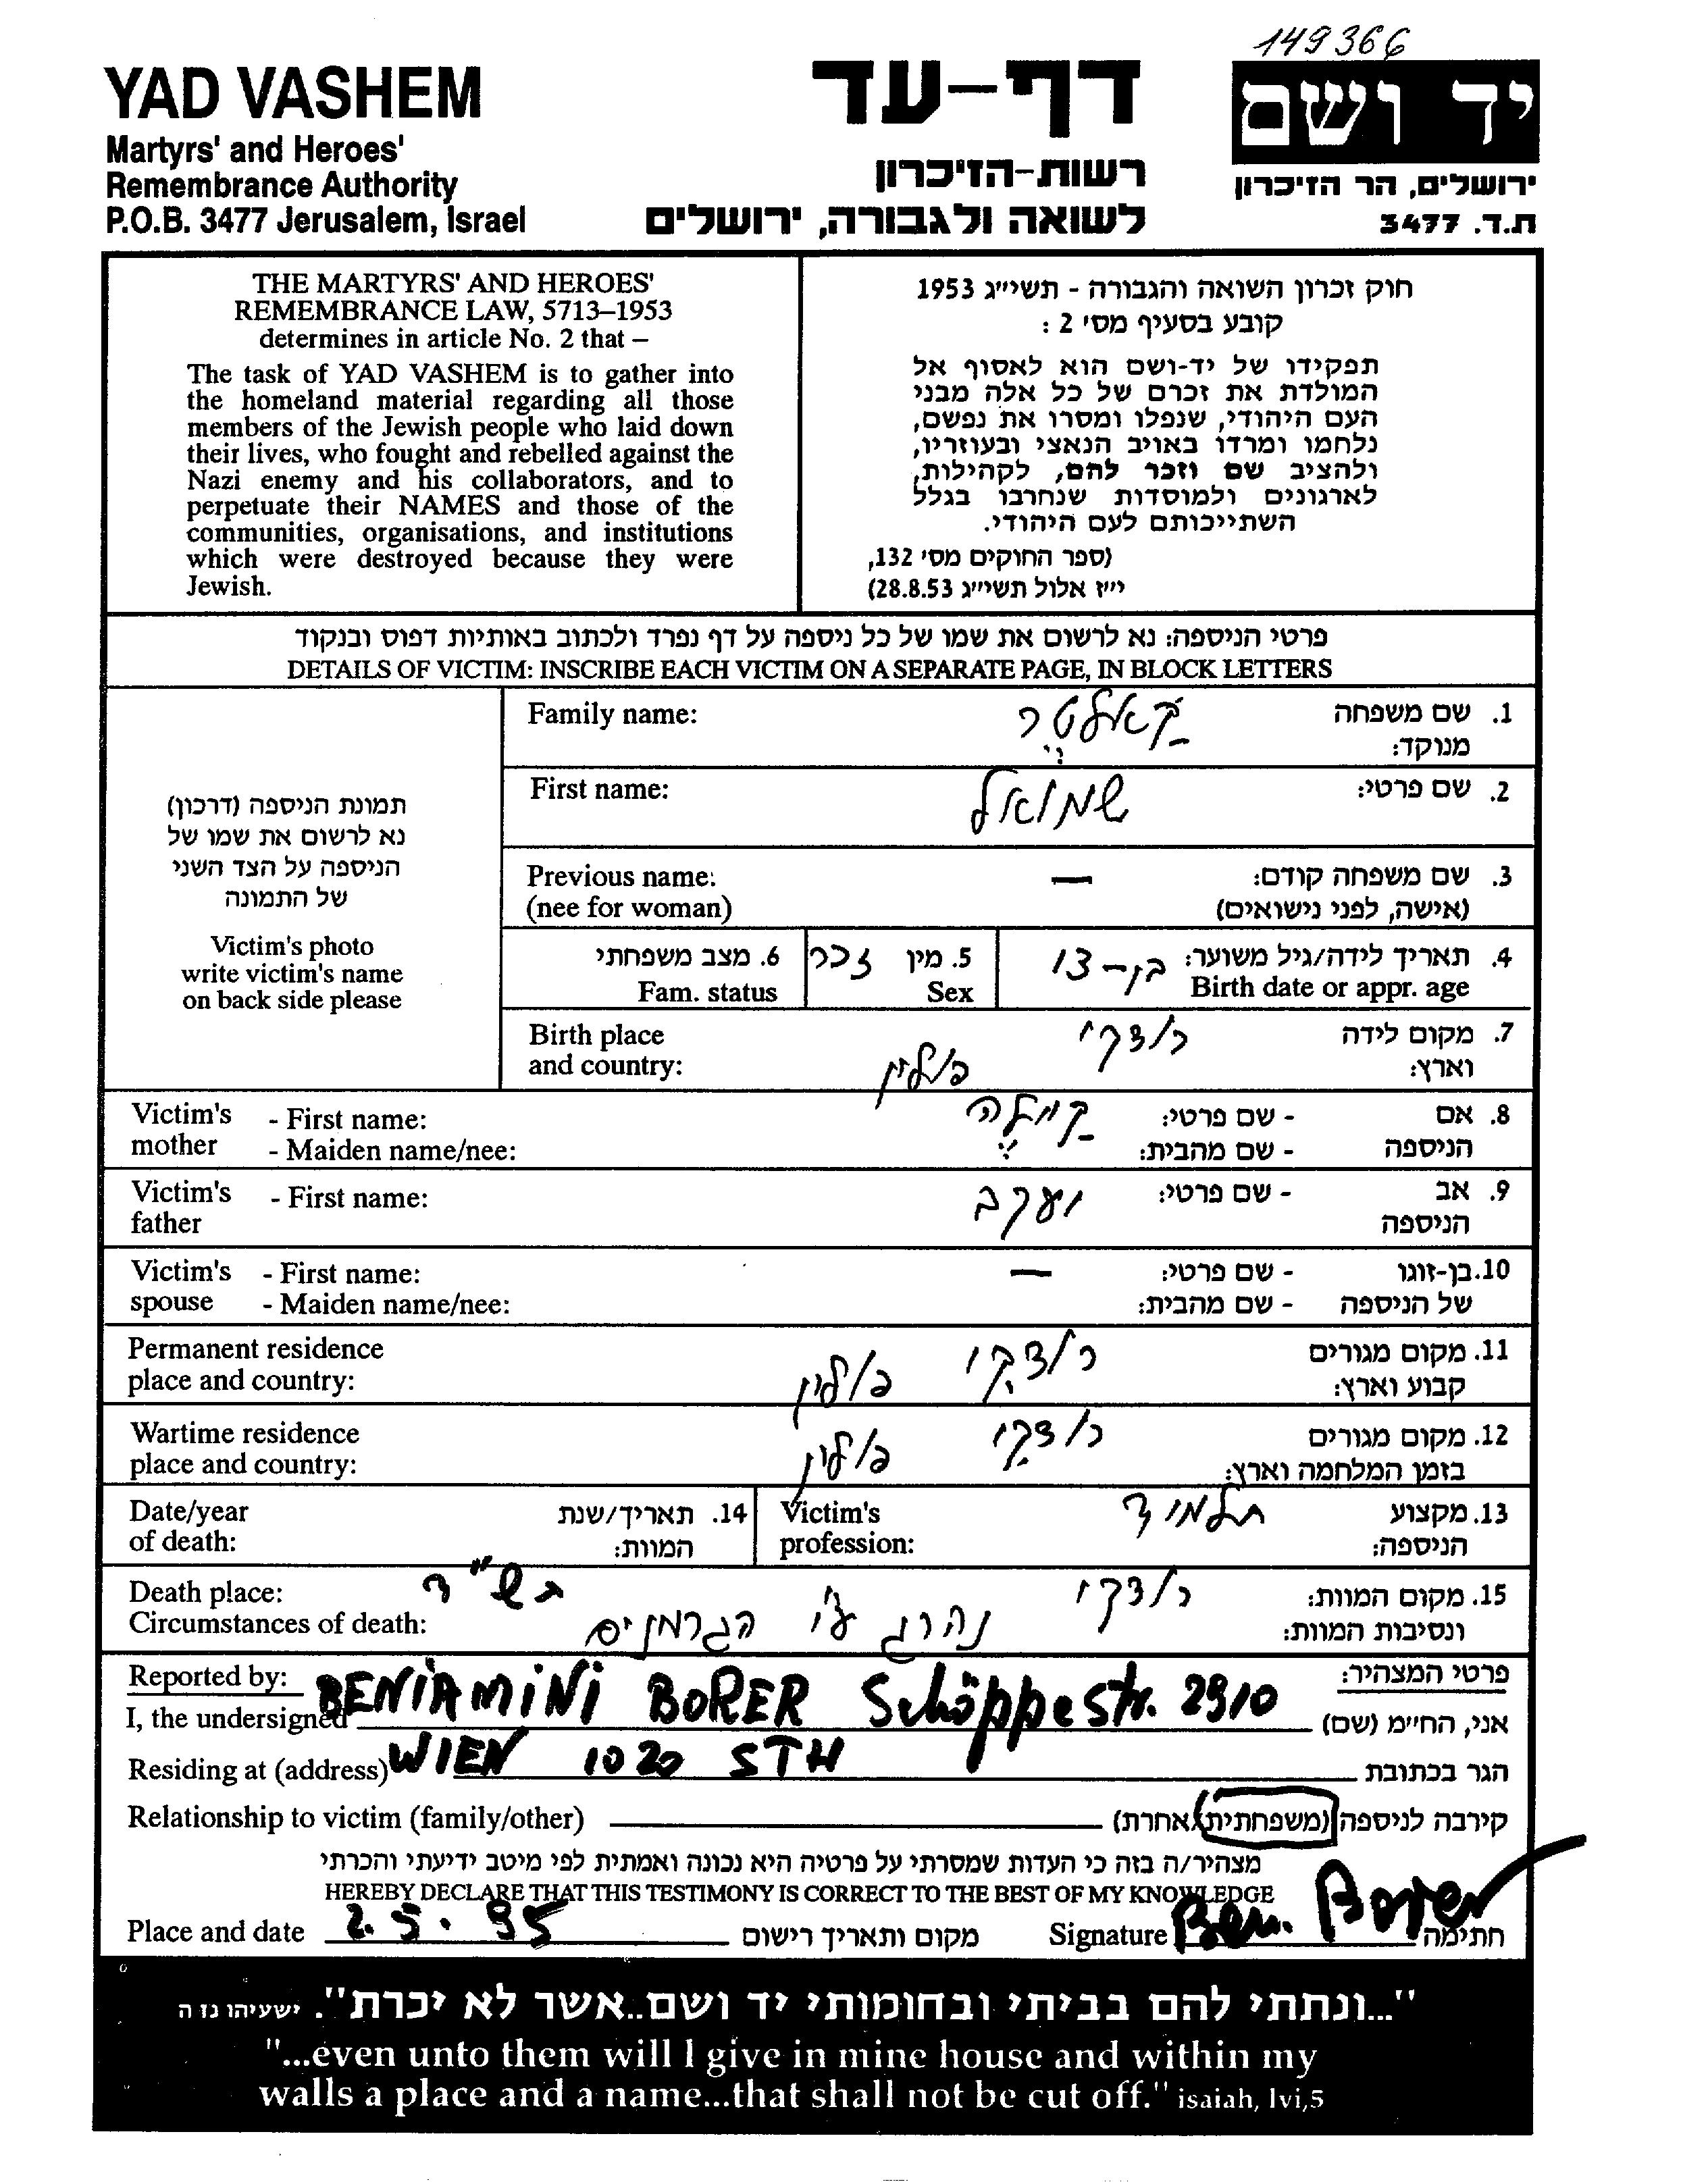 149366
YAD VASHEM
Martyrs' and Heroes'
Remembrance Authority
P.O.B. 3477 Jerusalem, Israel
דף-עד
רשות-הזיכרון
לשואה ולגבורה, ירושלים
יד ושם
ירושלים, הר הזיכרון
ת.ד. 3477
THE MARTYRS' AND HEROES'
REMEMBRANCE LAW, 5713–1953
determines in article No. 2 that –
The task of YAD VASHEM is to gather into
the homeland material regarding all those
members of the Jewish people who laid down
their lives, who fought and rebelled against the
Nazi enemy and his collaborators, and to
perpetuate their NAMES and those of the
communities, organisations, and institutions
which were destroyed because they were
Jewish.
חוק זכרון השואה והגבורה - תשי״ג 1953
קובע בסעיף מס׳ 2 :
תפקידו של יד-ושם הוא לאסוף אל
המולדת את זכרם של כל אלה מבני
העם היהודי, שנפלו ומסרו את נפשם,
נלחמו ומרדו באויב הנאצי ובעוזריו,
ולהציב שם וזכר להם, לקהילות,
לארגונים ולמוסדות שנחרבו בגלל
השתייכותם לעם היהודי.
(ספר החוקים מס׳ 132,
י״ז אלול תשי״ג 28.8.53)
פרטי הניספה: נא לרשום את שמו של כל ניספה על דף נפרד ולכתוב באותיות דפוס ובנקוד
DETAILS OF VICTIM: INSCRIBE EACH VICTIM ON A SEPARATE PAGE, IN BLOCK LETTERS
תמונת הניספה (דרכון)
נא לרשום את שמו של
הניספה על הצד השני
של התמונה
Victim's photo
write victim's name
on back side please
Family name: קאלטר 1. שם משפחה
מנוקד:
First name: שמואל 2. שם פרטי:
Previous name: — 3. שם משפחה קודם:
(nee for woman) (אישה, לפני נישואים)
4. תאריך לידה/גיל משוער: בן-13 5. מין זכר 6. מצב משפחתי
Birth date or appr. age Sex Fam. status
Birth place רוצקי 7. מקום לידה
and country: פולין וארץ:
Victim's - First name: קיילה - שם פרטי: 8. אם
mother - Maiden name/nee: - שם מהבית: הניספה
Victim's - First name: יעקב - שם פרטי: 9. אב
father הניספה
Victim's - First name: — - שם פרטי: 10. בן-זוגו
spouse - Maiden name/nee: - שם מהבית: של הניספה
Permanent residence רוצקי 11. מקום מגורים
place and country: פולין קבוע וארץ:
Wartime residence רוצקי 12. מקום מגורים
place and country: פולין בזמן המלחמה וארץ:
Date/year 14. תאריך/שנת Victim's תלמיד 13. מקצוע
of death: המוות: profession: הניספה:
Death place: רוצקי 15. מקום המוות:
Circumstances of death: נהרג ע״י הגרמנים תש״ד ונסיבות המוות:
Reported by: פרטי המצהיר:
I, the undersigned BENiAMiNi BORER Schöppestr. 2910 אני, החי״מ (שם)
Residing at (address) WIEN 1020 STH הגר בכתובת
Relationship to victim (family/other) קירבה לניספה (משפחתית/אחרת)
מצהיר/ה בזה כי העדות שמסרתי על פרטיה היא נכונה ואמתית לפי מיטב ידיעתי והכרתי
HEREBY DECLARE THAT THIS TESTIMONY IS CORRECT TO THE BEST OF MY KNOWLEDGE
Place and date 2.5.95 מקום ותאריך רישום Signature Ben. Borer חתימה
"...ונתתי להם בביתי ובחומותי יד ושם..אשר לא יכרת". ישעיהו נז ה
"...even unto them will I give in mine house and within my
walls a place and a name...that shall not be cut off." isaiah, lvi,5